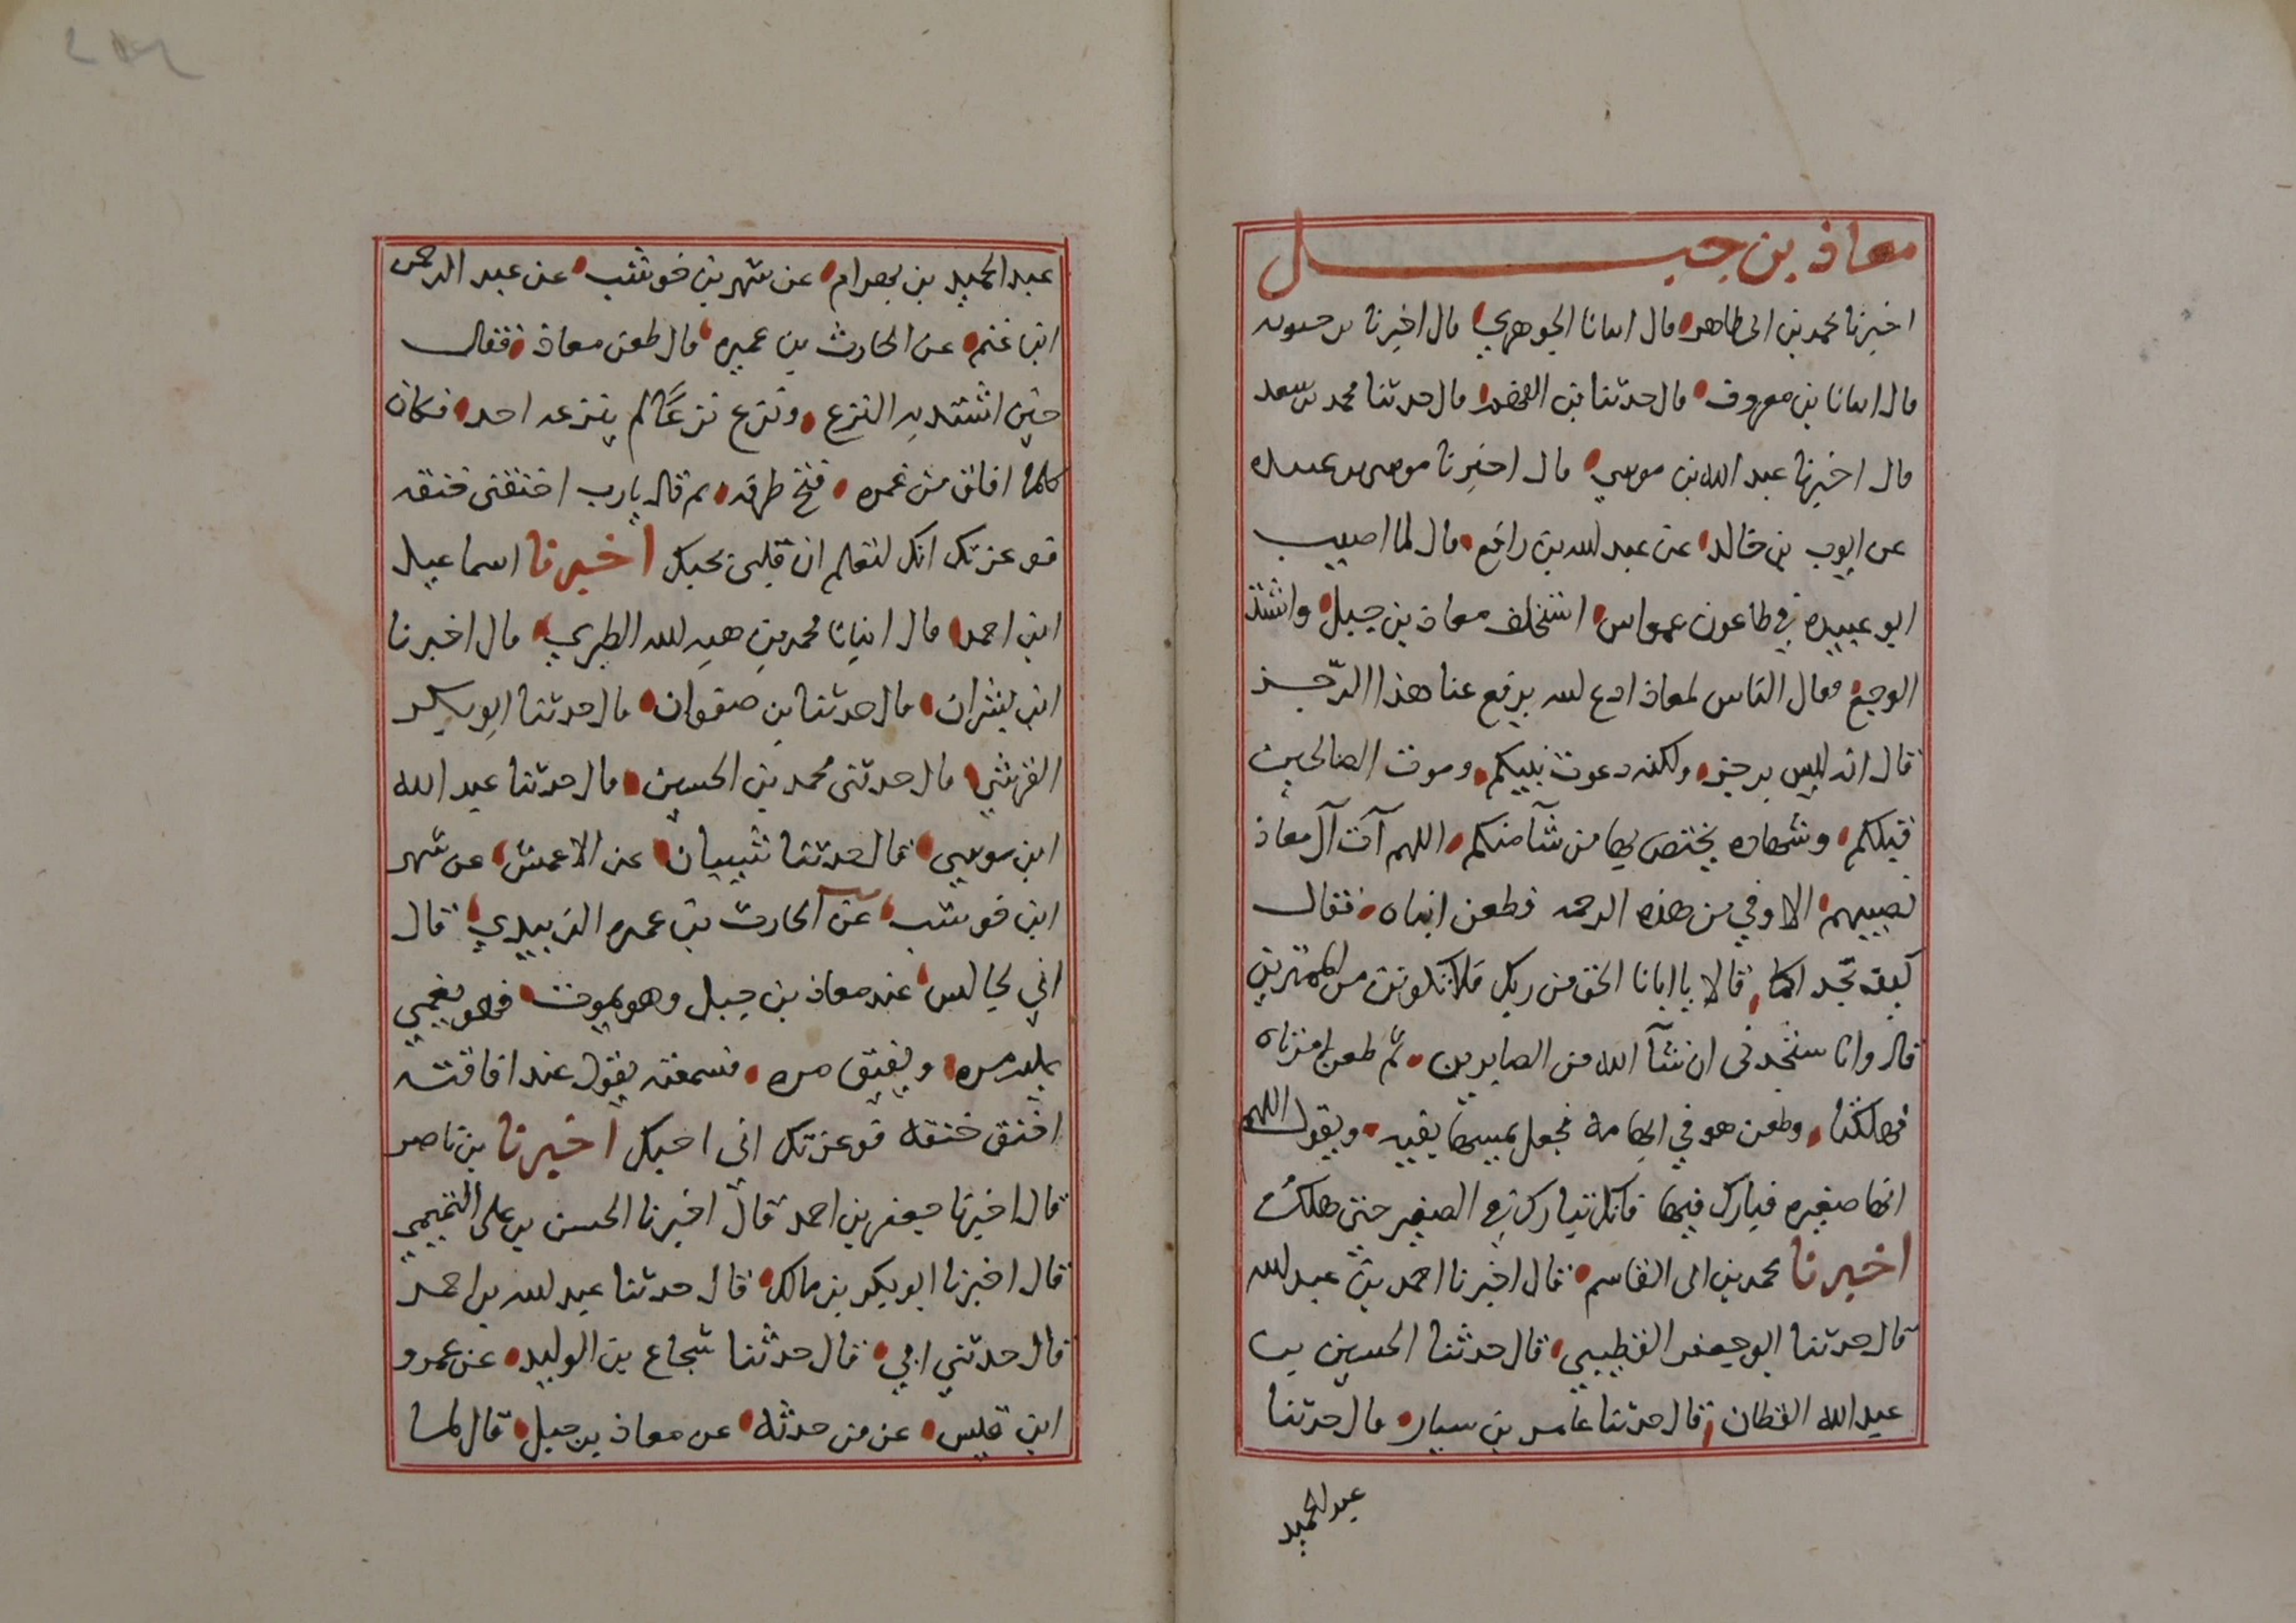 معاذ بن جبل
اخبرنا محمد بن ابى طاهر قال انبانا الجوهري قال اخبرنا بن حيويه
قال انبانا بن معروف قال حدثنا بن الفهم قال حدثنا محمد بن سعد
قال اخبرنا عبد الله بن موسي قال اخبرنا موسى بن عبيده
عن ايوب بن خالد عن عبد الله بن رافع قال لما اصيب
ابو عبيده في طاعون عمواس استخلف معاذ بن جبل واشتد
الوجع فقال الناس لمعاذ ادع الله يرفع عنا هذا الرّجز
قال انه ليس برجز ولكنه دعوت نبيكم وموت الصالحين
قبلكم وشهاده يختص بها من شآ منكم اللهم آت آل معاذ
نصيبهم الاوفي من هذه الرحمه فطعن ابناه فقال
كيف تجدانكما قالا يا ابانا الحق من ربك فلا تكونن من الممترين
قال وانا ستجدنى ان شآ الله من الصابرين ثم طعن امرتاه
فهلكتا وطعن هو في ابهامه فجعل يمسها بفيه ويقول اللهم
انها صغيره فبارك فيها فانك تبارك في الصغير حتى هلك
اخبرنا محمد بن ابى القاسم قال اخبرنا احمد بن عبد الله
قال حدثنا ابو جعفر القطيبي قال حدثنا الحسين بن
عبد الله القطان قال حدثنا عامر بن سيار قال حدثنا
عبد الحميد
عبد الحميد بن بهرام عن شهر بن خوشب عن عبد الرحمن
ابن غنم عن الحارث بن عميره قال طعن معاذ فقال
حين اشتد به النزع ونزع نزعًا لم ينزعه احد فكان
كلما افاق من غمره فتح طرفه ثم قال يارب اخنقنى خنقه
فوعزتك انك لتعلم ان قلبى يحبك اخبرنا اسماعيل
ابن احمد قال انبانا محمد بن هبه الله الطبري قال اخبرنا
ابن بشران قال حدثنا بن صفوان قال حدثنا ابو بكر
القرشي قال حدثنى محمد بن الحسين قال حدثنا عبد الله
ابن موسي قال حدثنا شيبان عن الاعمش عن شهر
ابن خوشب عن الحارث بن عميره الزبيدي قال
اني لجالس عند معاذ بن جبل وهو يموت فهو يغمي
عليه مره ويفيق مره فسمعته يقول عند افاقته
اخنق خنقك فوعزتك انى احبك اخبرنا بن ناصر
قال اخبرنا جعفر بن احمد قال اخبرنا الحسن بن على التميمي
قال اخبرنا ابو بكر بن مالك قال حدثنا عبد الله بن احمد
قال حدثني ابي قال حدثنا شجاع بن الوليد عن عمرو
ابن قيس عن من حدثه عن معاذ بن جبل قال لما